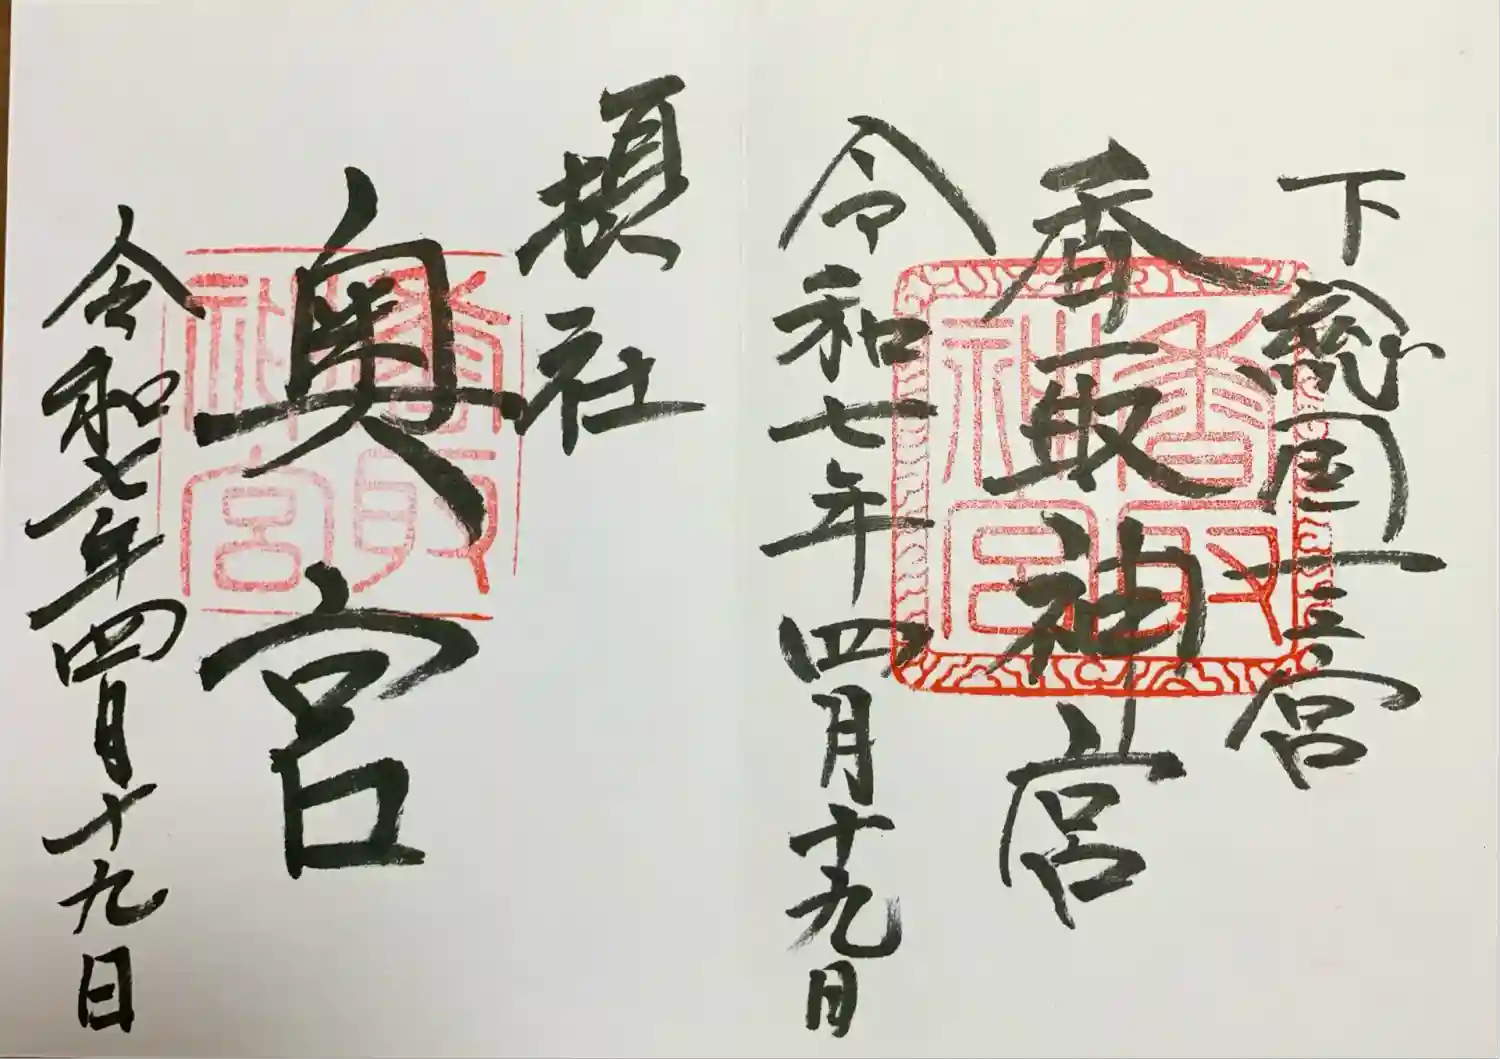 下総国一之宮
香取神宮
令和七年四月十九日
香取神宮
摂社
奥宮
令和七年四月十九日
香取神宮